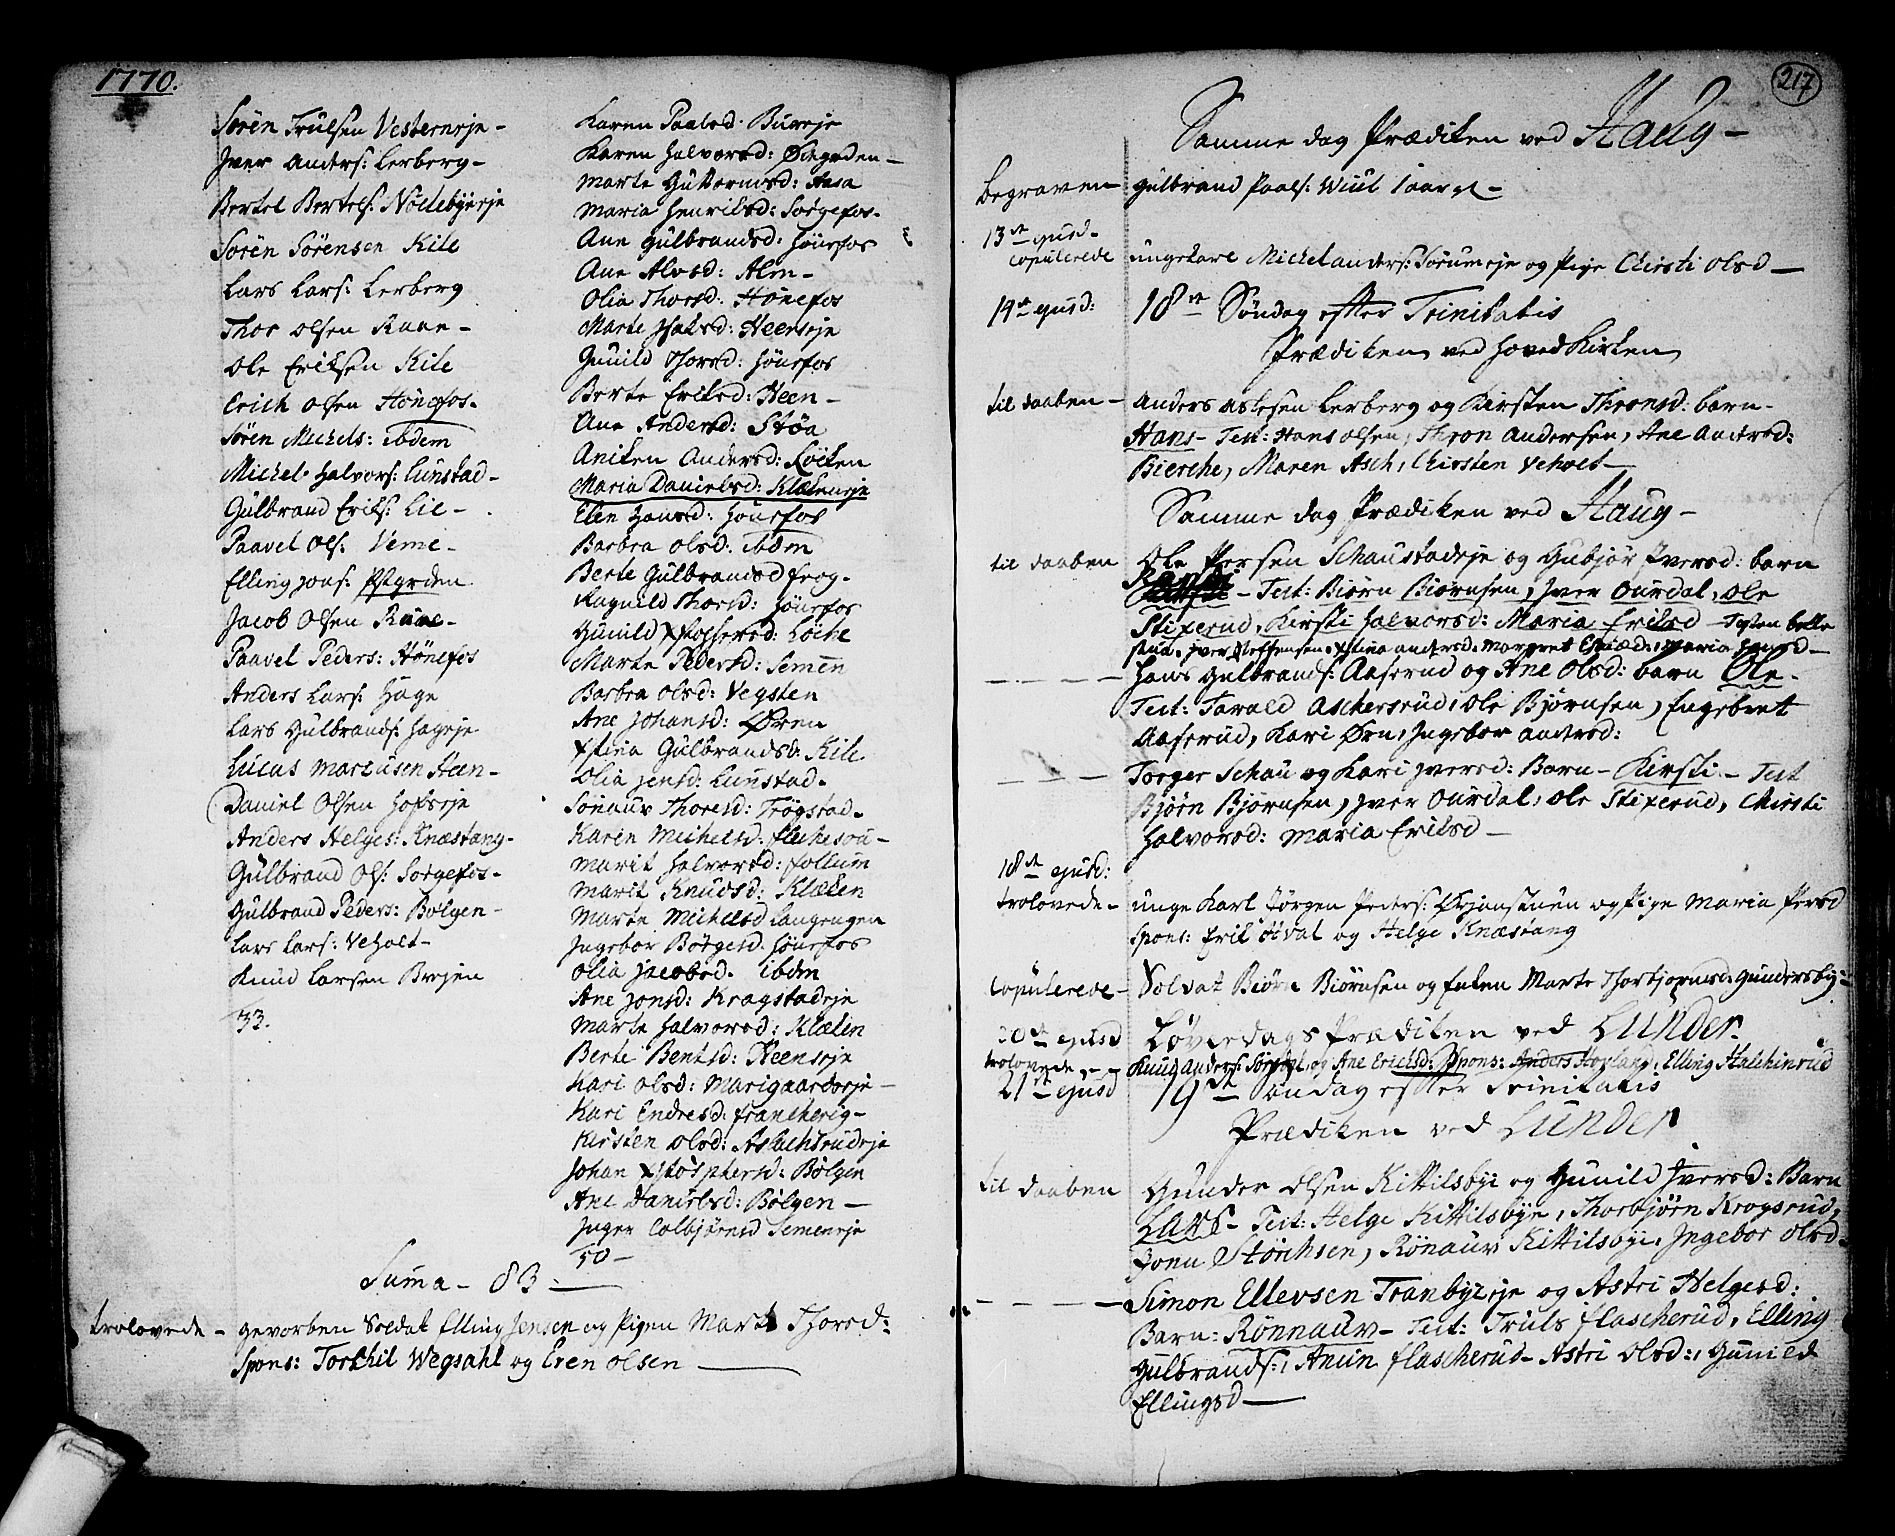 1770.
Sørën Trulsen Vesterneje -
Jver Anders: Lerberg -
Bertel Bertels: Nøclebyeeje
Sorën Sörensen Kile
Lars Lars: Lerberg
Thor olsen Raae -
Ole Eriksen Kile
Erich olsen Hönefos.
Sören Michels: ibdem
Michel Halvors: Lunstad -
Gulbrand Eriks: Lie -
Paavel Ols: Veme -
Elling Jons:
Jacob Olsen Ruue -
Paavel Peders: Hönefos
Anders Lars: Hage
Lars Gulbrands: Hageje
Lucas Marcusen Heen -
Daniel Olsen Hofseje
Anders Helges: Knæstang -
Gulbrand Ols: Sørgefos -
Gulbrand Peders: Bølgen -
Lars Lars: Veholt -
Knud Larsen
33.
Karen Paalsd: Bureeje
Karen Halvorsd: Øegrden -
Marte Guttormsd: Aasa
Maria Henriksd: Sørgefos.
Ane Gulbrandsd: Hönefos
Ane Alvsd: Alm -
Olia Thorsd: Hönefos
Marte Jsaksd: Heenseje
Gunild Thorsd: Hönefos
Berte Eriksd: Heen -
Ane Andersd: Støa
Aniken Andersd: Løcken
Maria Danielsd: Klækeneje
Elen Hansd: Hönefos
Barbra Olsd: ibdm
Berte Gulbrandsd Frog -
Ragnild Thorsd: Hönefos
Gunild Xstoffersd: Löcke
Marte Pedersd: Semën
Barbra Olsd: Vegsten
Ane Johansd: Øren
Xstina Gulbrandsd: Kile
Olia Jensd: Lunstad -
Sönauv Thoresd: Trögstad -
Karën Michelsd: Fleskesou -
Marit Halvorsd: Follum
Marit Knudsd: Klæken
Marte Michelsd Langengen
Jngebor Börgesd: Hönefos
Olia Jacobsd. ibdm
Ane Jonsd: Kragstadeje
Marte Halvorsd: Klækën
Berte Bentsd: Heenseje
Kari Olsd: Marigaardseje -
Kari Endresd: Franckerig -
Kirsten Olsd: Aslachsrudeje
Johan Xstöphersd: Bölgen
Ane Danielsd: Bölgen -
Jnger Colbjørnsd Semeneje
50 -
Suma - 83 -
trolovede - gevorben Soldat Elling Jensen og Pigen Marte Thorsd:
Spons: Torkhil Wegsahl og Eren olsen
217
Samme dag Prædiken ved Haug -
Begraven Gulbrand Paals: Wiul 1 aar gl -
13de ejusd.
copulerede ungekarl Michel Anders: Sørumeje og Pige Chirsti Olsd -
14de ejusd: 18de Søndag efter Trinitatis
Prædiken ved Hoved Kirken
til Daaben - Anders Aslesen Lerberg og Kirsten Thronsd: barn -
Hans - Test: Hans olsen, Thron Andersen, Ane Andersd:
Bierche, Maren Asch, Chirsten Veholt -
Samme dag Prædiken ved Haug -
til Daaben Ole Persen Schaustadeje og Gubjør Jversd: barn
- Test: Biørn Biørnsen, Jver Ourdal, Ole
Stixerud, Kirsti Halvorsd: Maria Eriksd -
Jver Steffensen, Xstina Andersd. Margret
- - - Hans Gulbrands: Aaserud og Ane Olsd: barn Ole -
Test: Tarald Aschersrud, Ole Bjørnsen, Engebret
Aaserud, Kari Ørn, Jngebor Andersd:
- - - Torger Schau og Kari Jversd: Barn - Kirsti - Test
Bjørn Bjørnsen, Jver Ourdal, Ole Stixerud, Chirsti
Halvorsd: Maria Eriksd -
18de ejusd:
trolovede - unge Karl Jörgen Peders: Ørjanstuen og Pige Maria Persd
Spons: Erik og Helge Knæstang
Copulerede - Soldat Biørn Biørnsen og Enken Marte Thorbjørnsd: Gundersbye
20de ejusd Løverdags Prædiken ved Lunder.
trolovede - - Knud Anders: og Ane Ericksd: Spons: Anders Hovland, Elling Halchinrud
21de ejusd 19de Søndag efter Trinitatis
Prædiken ved Lunder
til daaben Gunder Olsen Kittilsbye og Gunild Jversd: Barn
Lars - Test: Helge Kittilsbye, Thorbjörn Krogsrud,
Joen Størchsen, Rönauv Kittilsbye, Jngebor Olsd -
- - - Simon Ellevsen Tranbyeeje og Astri Helgesd:
Barn: Rönnauv - Test: Truls Flascherud, Elling
Gulbrands:, Anun Flascherud - Astri Olsd:, Gunild
Ellingsd -